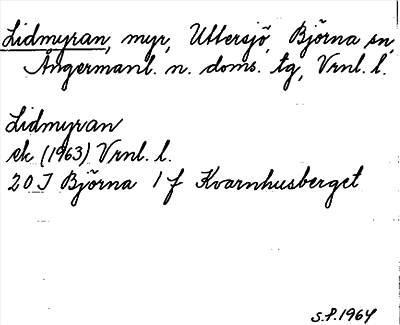 Lidmyran, myr, Uttersjö, Björna sn,
Ångermanl. n. doms. tg, Vrnl. l.
Lidmyran
ek (1963) Vrnl. l.
20 I Björna 1 f Kvarnhusberget
S.P. 1964